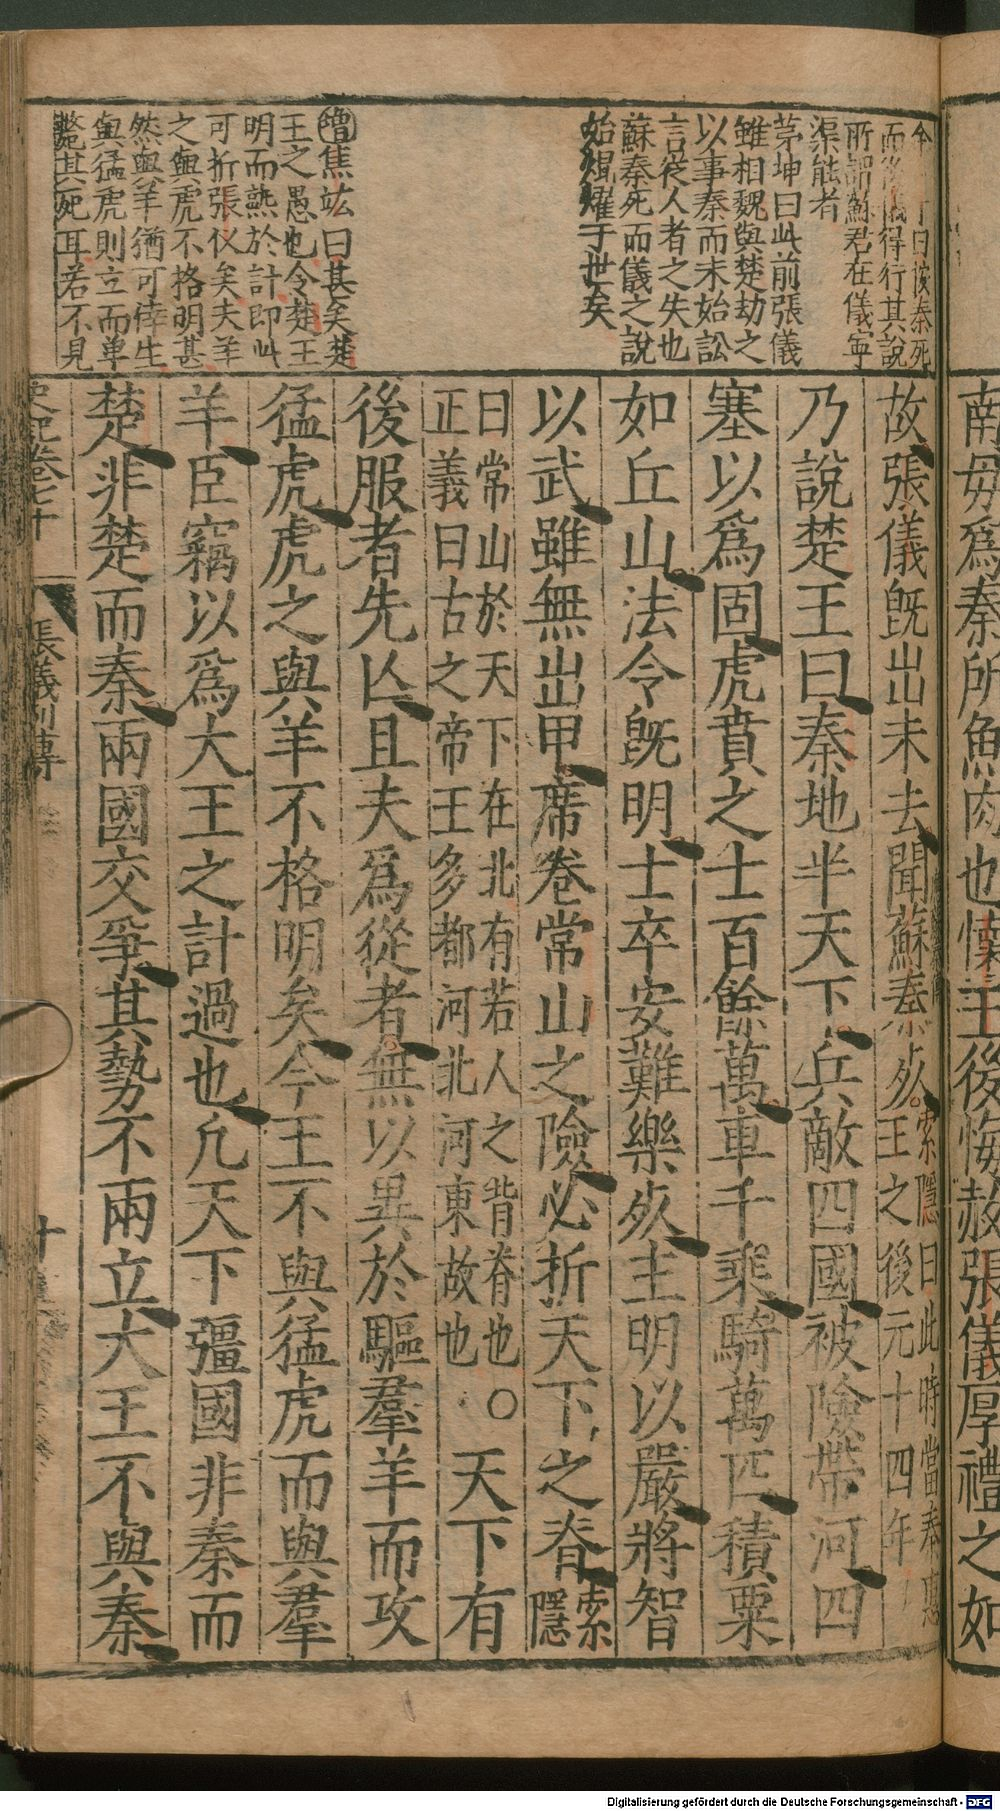 南毋為秦所魚肉也懷王後悔赦張儀厚禮之如
曰按秦死
而後儀得行其說
所謂蘇君在儀寧
渠能者
茅坤曰此前張儀
雖相魏與楚劫之
以事秦而未始訟
言從人者之失也
蘇秦死而儀之說
始焜燿于世矣
增焦竑曰甚矣楚
王之愚也令楚王
明而熟於計即此
可折張仪矣夫羊
之與虎不格明甚
然與羊猶可倖生
與猛虎則立而单
斃其死耳若不見
故張儀既出未去聞蘇秦死索隱曰此時當秦惠
王之後元十四年
乃說楚王曰秦地半天下兵敵四國被險帶河四
塞以為固虎賁之士百餘萬車千乘騎萬匹積粟
如丘山法令既明士卒安難樂死主明以嚴將智
以武雖無出甲席卷常山之險必折天下之脊索
隱
曰常山於天下在北有若人之背脊也○
正義曰古之帝王多都河北河東故也
天下有
後服者先亾且夫為從者無以異於驅羣羊而攻
猛虎虎之與羊不格明矣今王不與猛虎而與羣
羊臣竊以為大王之計過也凢天下彊國非秦而
楚非楚而秦兩國交爭其勢不兩立大王不與秦
史記卷七十
張儀列傳
十
Digitalisierung gefördert durch die Deutsche Forschungsgemeinschaft - DFG